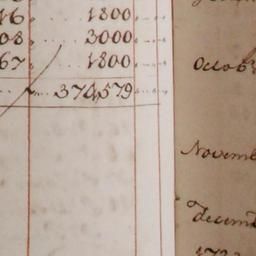 46 1800
08 3000
67 1800
374,579
Octob
Novemb
Decemb